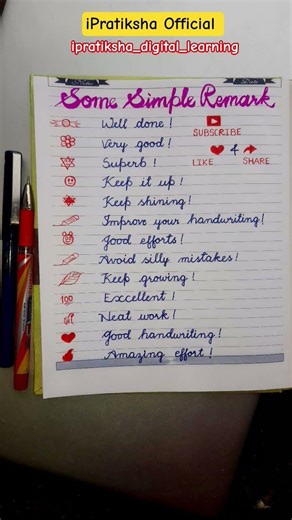 iPratiksha Official
ipratiksha_digital_learning
Some Simple Remark
Well done!
SUBSCRIBE
Very good!
4
LIKE SHARE
Superb!
Keep it up!
Keep shining!
Improve your handwriting!
Good efforts!
Avoid silly mistakes!
Keep growing!
100 Excellent!
Neat work!
Good handwriting!
Amazing effort!